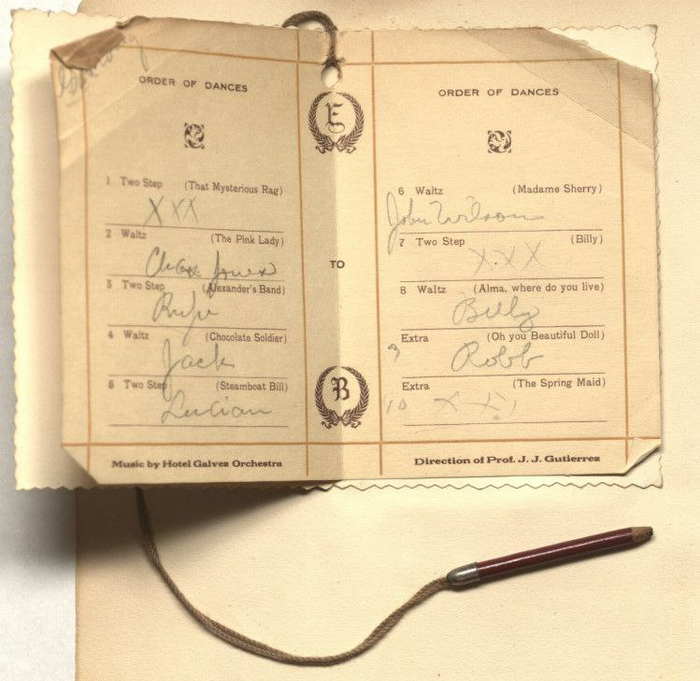 ORDER OF DANCES
1 Two Step (That Mysterious Rag)
XXX
2 Waltz (The Pink Lady)
Jones
3 Two Step (Alexander's Band)
Rufe
4 Waltz (Chocolate Soldier)
Jack
5 Two Step (Steamboat Bill)
Lucian
Music by Hotel Galvez Orchestra
E
TO
B
ORDER OF DANCES
6 Waltz (Madame Sherry)
John Wilson
7 Two Step (Billy)
X.X.X
8 Waltz (Alma, where do you live)
Billy
9 Extra (Oh you Beautiful Doll)
Robb
Extra (The Spring Maid)
10 X X
Direction of Prof. J. J. Gutierrez